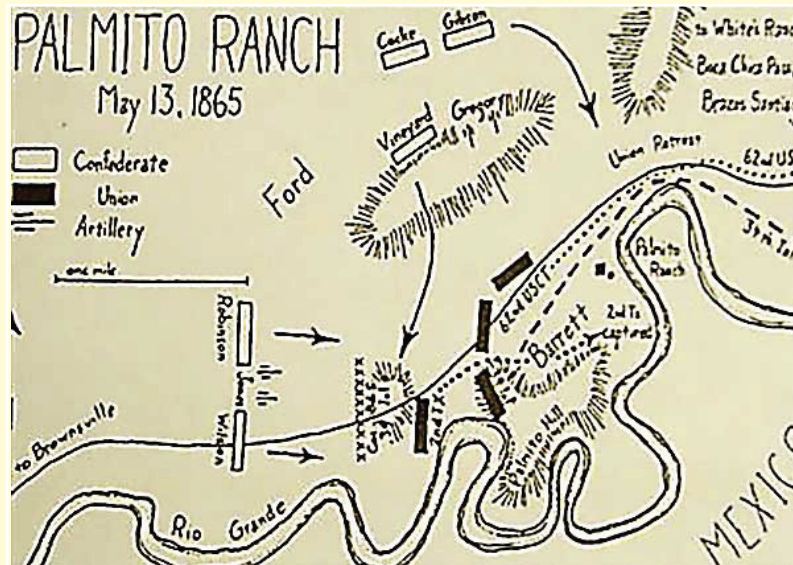 PALMITO RANCH
May 13, 1865
Confederate
Union
Artillery
one mile
Cocke
Gibson
to White's Ranc
Boca Chica Pass
Brazos Santia
Vineyard
Gregor
Ford
Union Retreat
62nd US
34th In
Palmito
Ranch
62nd USCT
Barrett
2nd Tx
captured
Robinson
Jones
Wilson
2nd TX
Palmito Hill
to Brownsville
RIO Grande
MEXICO